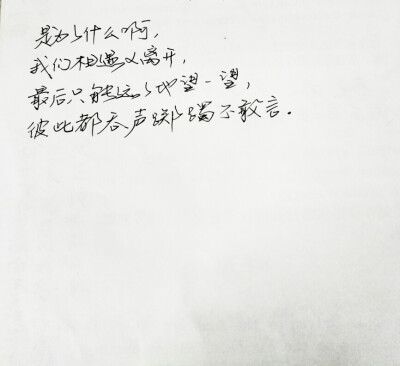 是为什么啊，
我们相遇又离开，
最后只能远远地望一望，
彼此都吞声踯躅不敢言.